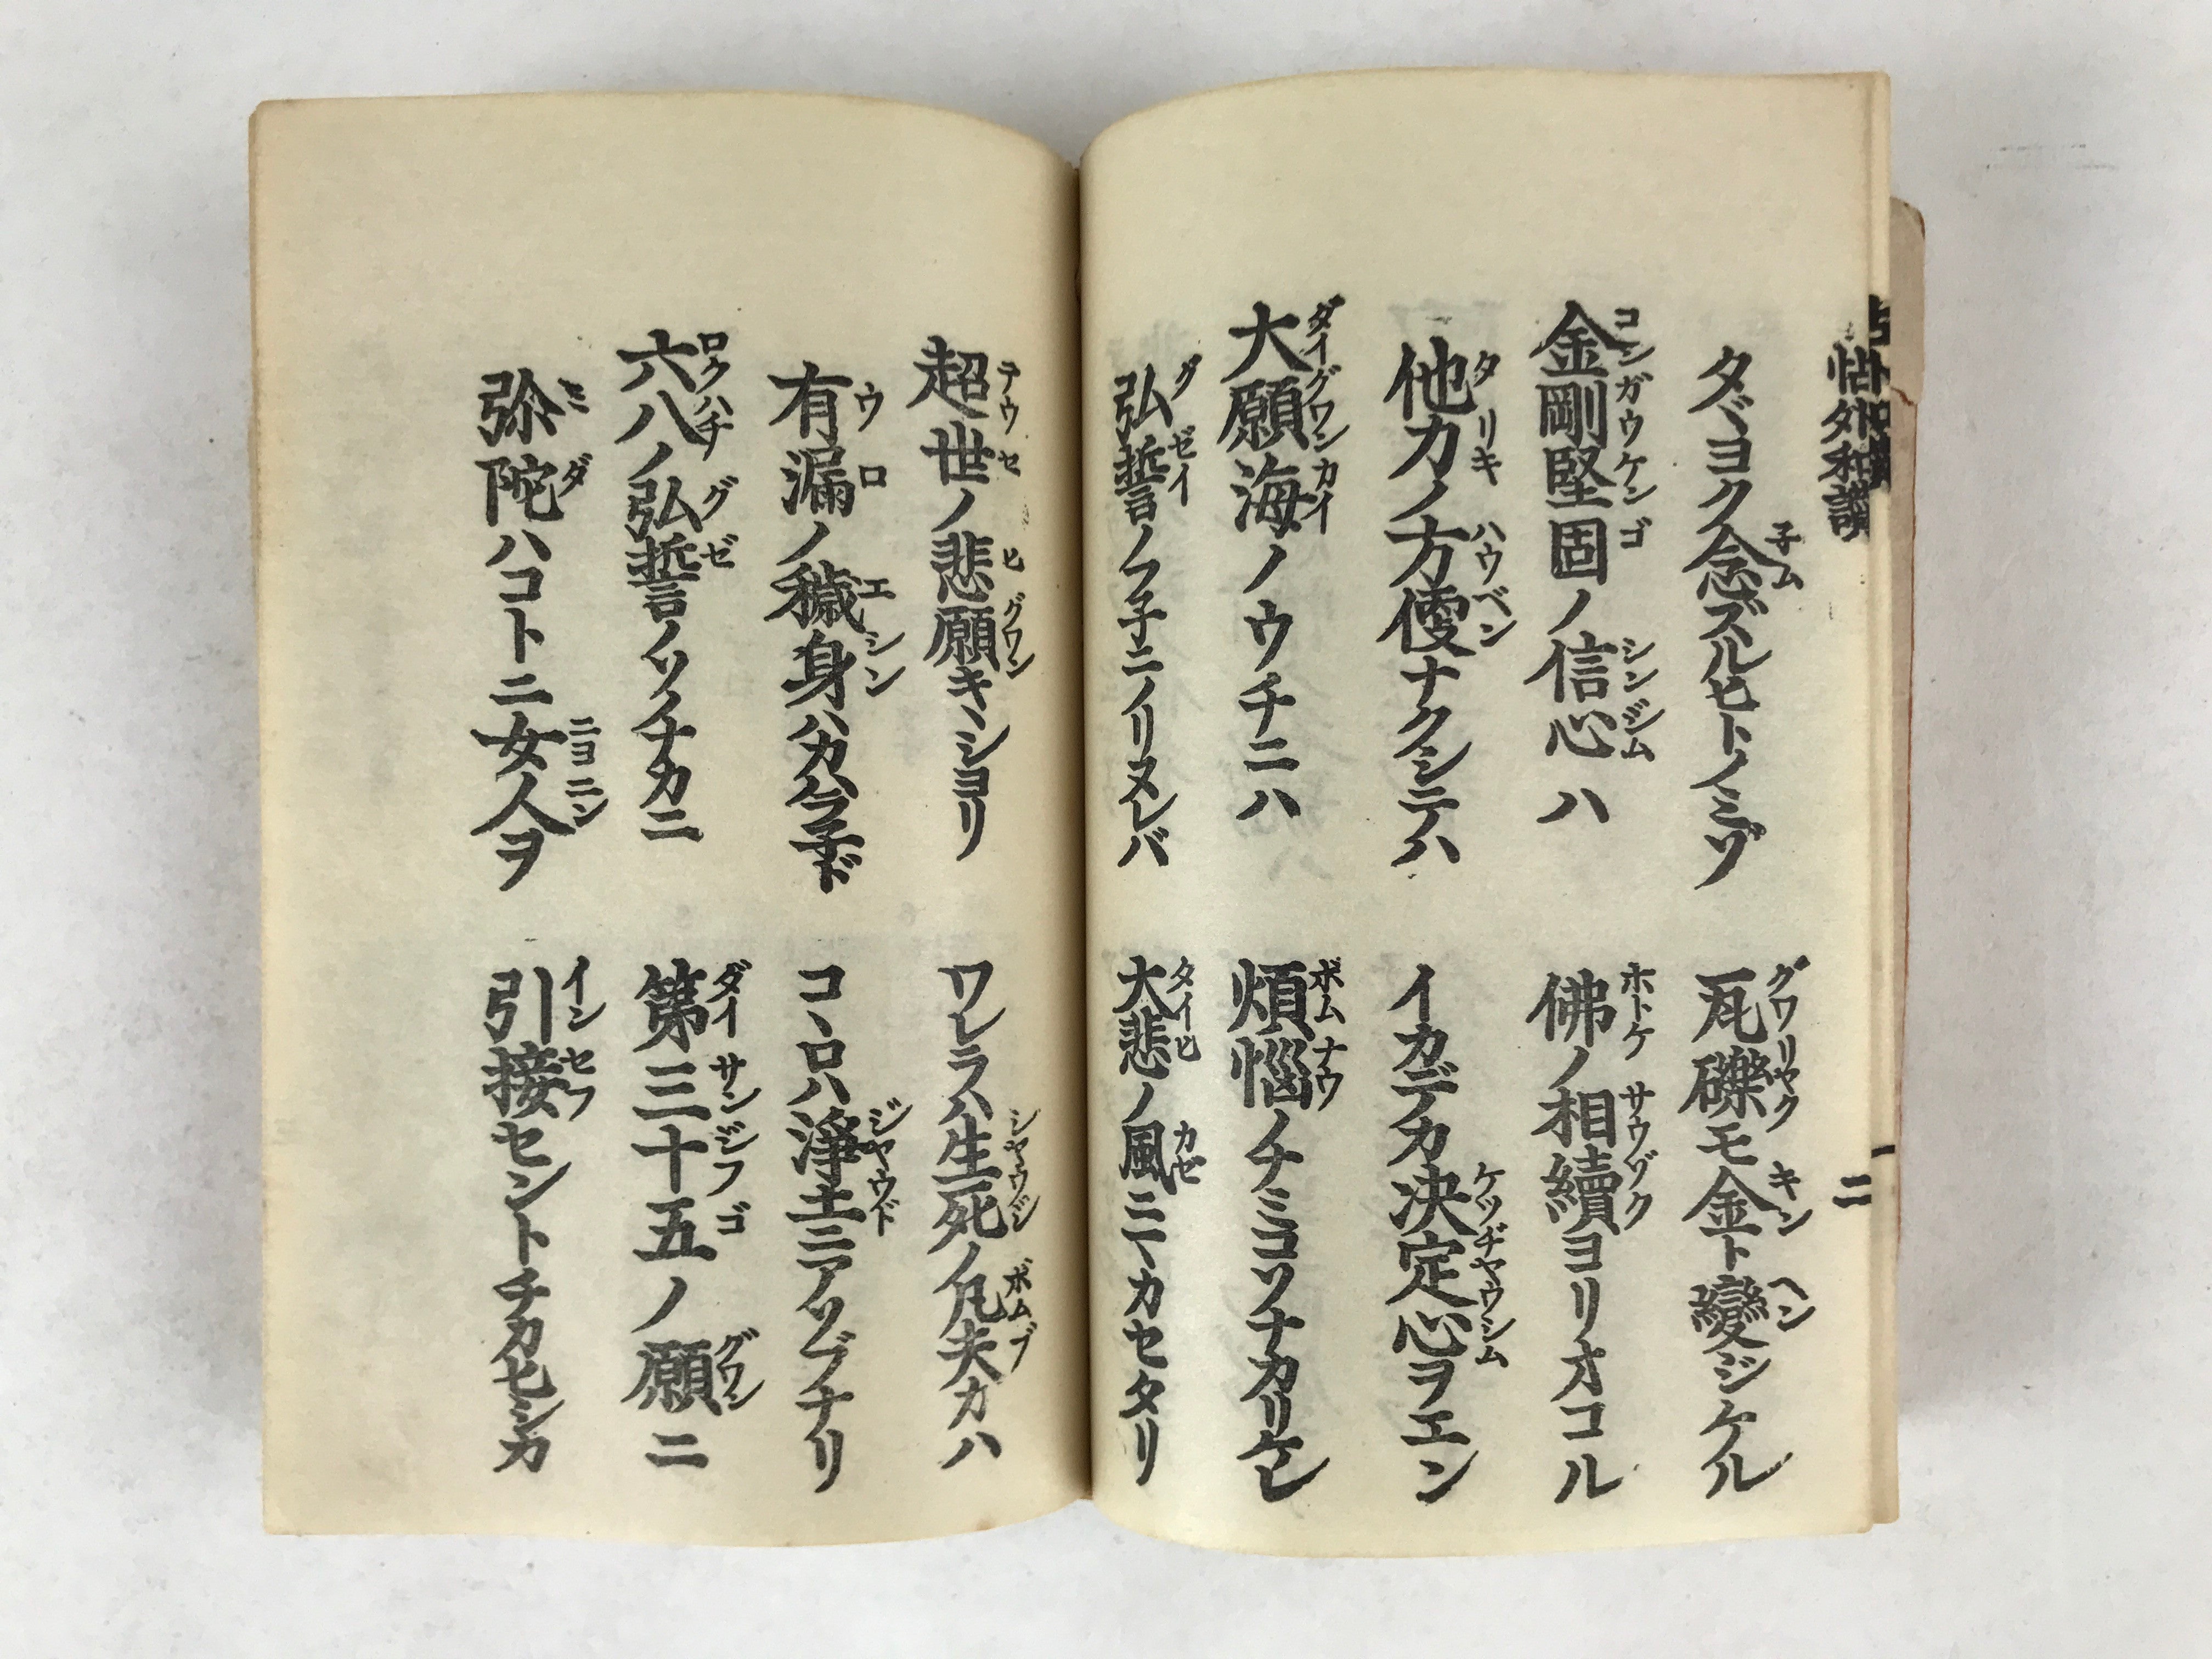 帖外和讃
二
タヾヨク念ズルヒトノミゾ
瓦礫モ金ト變ジケル
金剛堅固ノ信心ハ
佛ノ相續ヨリオコル
他力ノ方便ナクシテハ
イカデカ決定心ヲエン
大願海ノウチニハ
煩惱ノナミコソナカリケレ
弘誓ノフ子ニノリヌレバ
大悲ノ風ニマカセタリ
超世ノ悲願キヽシヨリ
ワレラハ生死ノ凡夫カハ
有漏ノ穢身ハカハラ子ド
コヽロハ淨土ニアソブナリ
六八ノ弘誓ノソノナカニ
第三十五ノ願ニ
弥陀ハコトニ女人ヲ
引接セントチカヒシカ